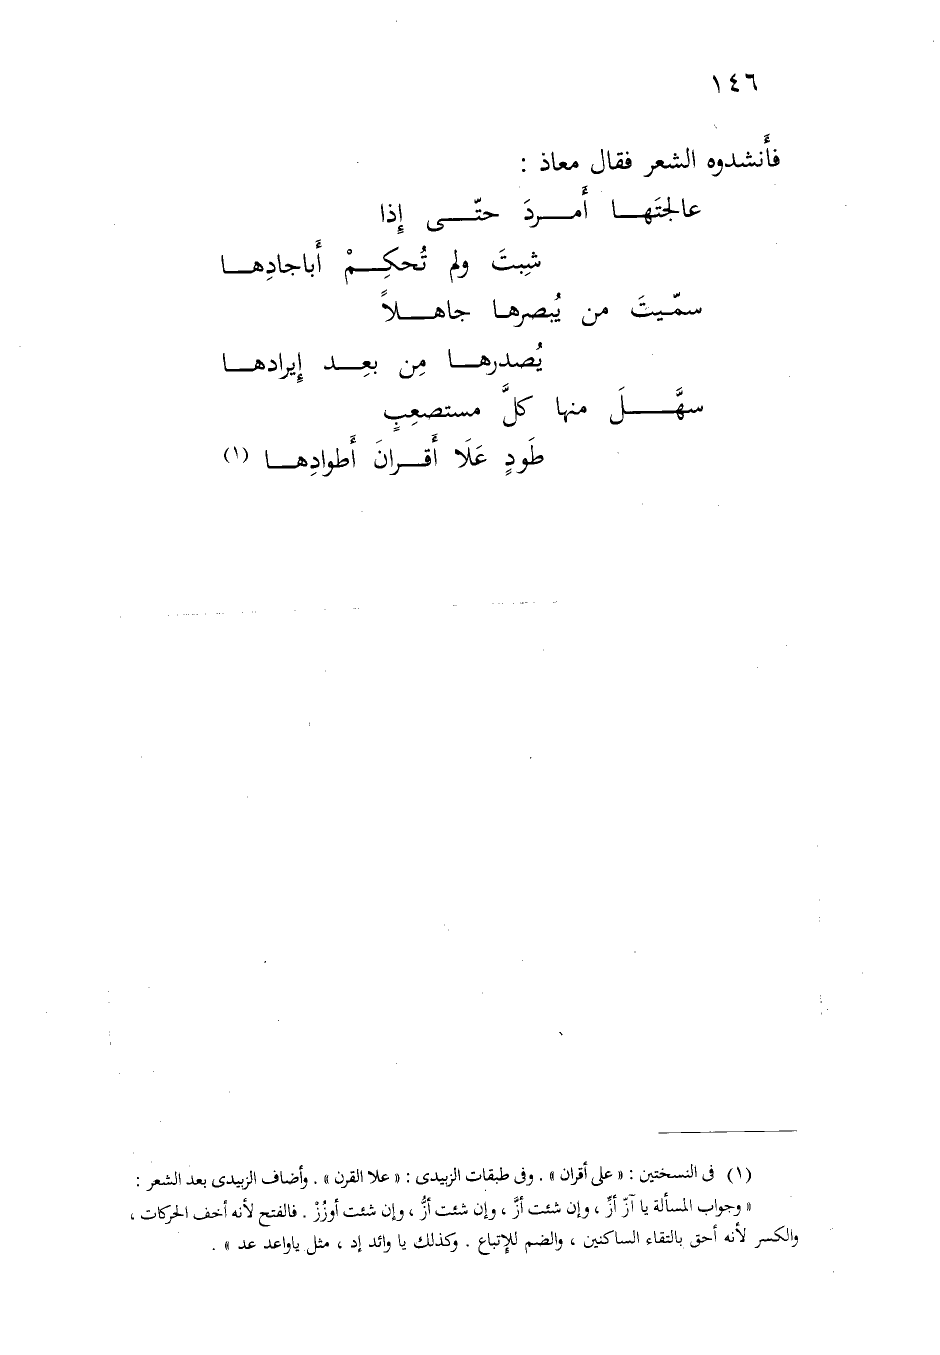 ١٤٦
فأَنشدوه الشعر فقال معاذ :
عالجتَهـا أَمـردَ حتّـى إِذا
شِبتَ ولم تُحكِـمْ أَباجادِهـا
سمّيتَ من يُبصرها جاهـلاً
يُصدرهـا مِن بعِـد إِيرادهـا
سهَّـلَ منها كلَّ مستصعِبٍ
طَودٍ عَلَا أَقـرانَ أَطوادِهـا (١)
(١) فى النسختين : « على أقران » . وفى طبقات الزبيدى : « علا القرن » . وأضاف الزبيدى بعد الشعر :
« وجواب المسألة يا آزّ أزِّ ، وإن شئت أزَّ ، وإن شئت أزُّ ، وإن شئت أوزُزْ . فالفتح لأنه أخف الحركات ،
والكسر لأنه أحق بالتقاء الساكنين ، والضم للإتباع . وكذلك يا وائد إد ، مثل ياواعد عد » .